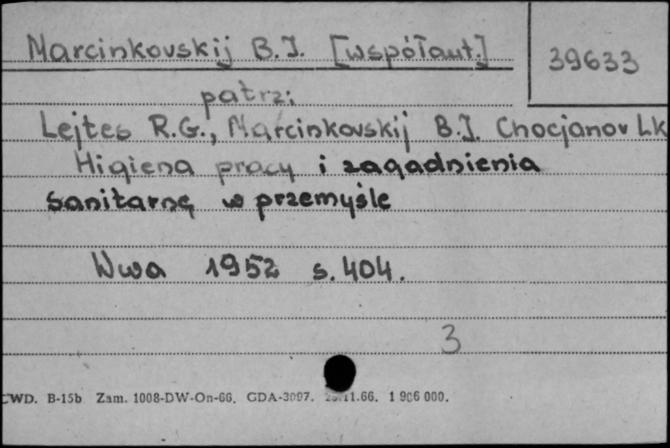 Marcinkovskij B.I. [współaut.]
39633
patrz:
Lejtes R.G., Marcinkovskij B.I. Chocjanov L.K
Higiena pracy i zagadnienia
sanitarne w przemyśle
Wwa 1952 s. 404.
3
CWD. B-15b Zam. 1008-DW-On-66. GDA-3097. 11.66. 1 906 000.